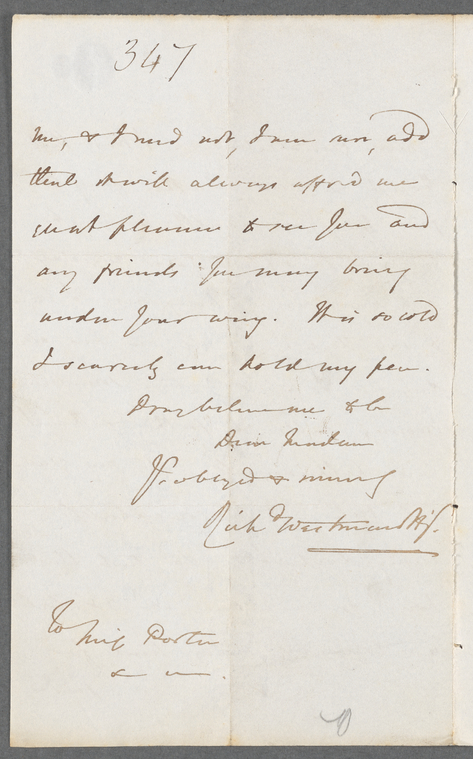 347
me, & I need not, I am sure, add
that it will always afford me
great pleasure to see you and
any friends you may bring
under your wing. It is so cold
I scarcely can hold my pen.
Pray believe me to be
Dear Madam
Yr obliged & sincerely
Richd Westmacott
To Miss Porter
&